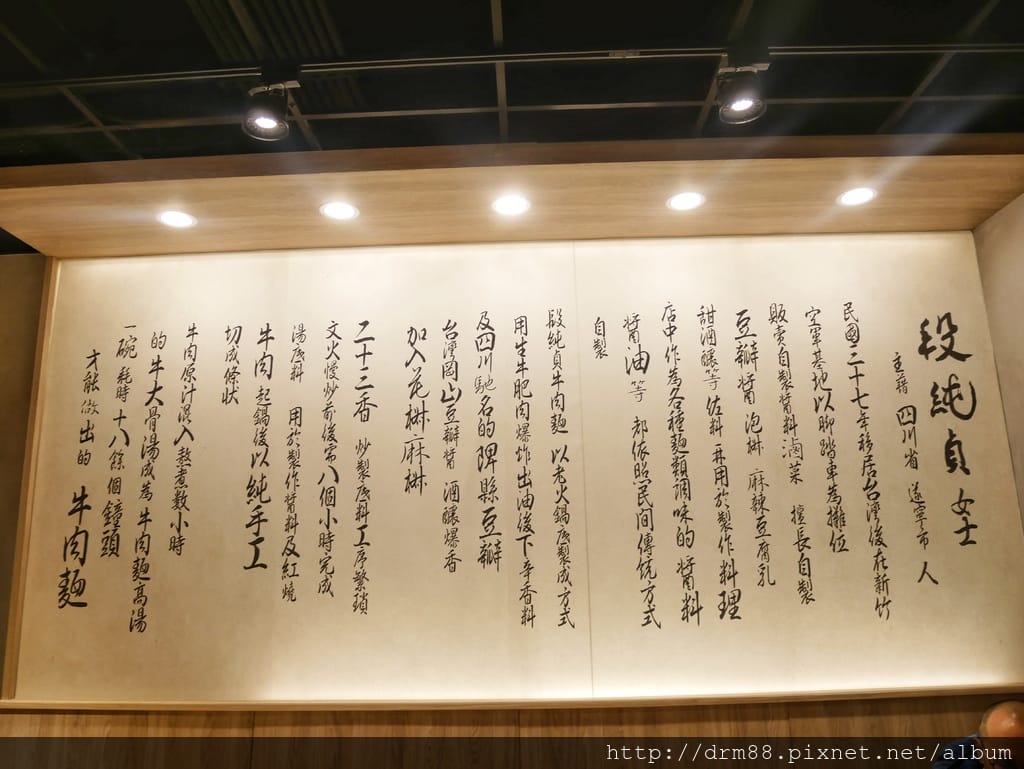 段純貞 女士
主籍 四川省 遂寧市 人
民國三十七年移居台灣後在新竹
空軍基地以腳踏車為攤位
販賣自製醬料滷菜 擅長自製
豆瓣醬 泡椒 麻辣豆腐乳
甜酒釀等佐料 再用於製作料理
店中作為各種麵類調味的醬料
醬油等 都依照民間傳統方式
自製
段純貞牛肉麵 以老火鍋底製成方式
用生牛肥肉爆炸出油後下辛香料
及四川馳名的郫縣豆瓣
台灣岡山豆瓣醬 酒釀爆香
加入花椒麻椒
二十三香 炒製底料工序繁瑣
文火慢炒前後需八個小時完成
湯底料 用於製作醬料及紅燒
牛肉 起鍋後以純手工
切成條狀
牛肉原汁混入熬煮數小時
的牛大骨湯成為 牛肉麵高湯
一碗 耗時十八餘個鐘頭
才能做出的 牛肉麵
http://drm88.pixnet.net/album